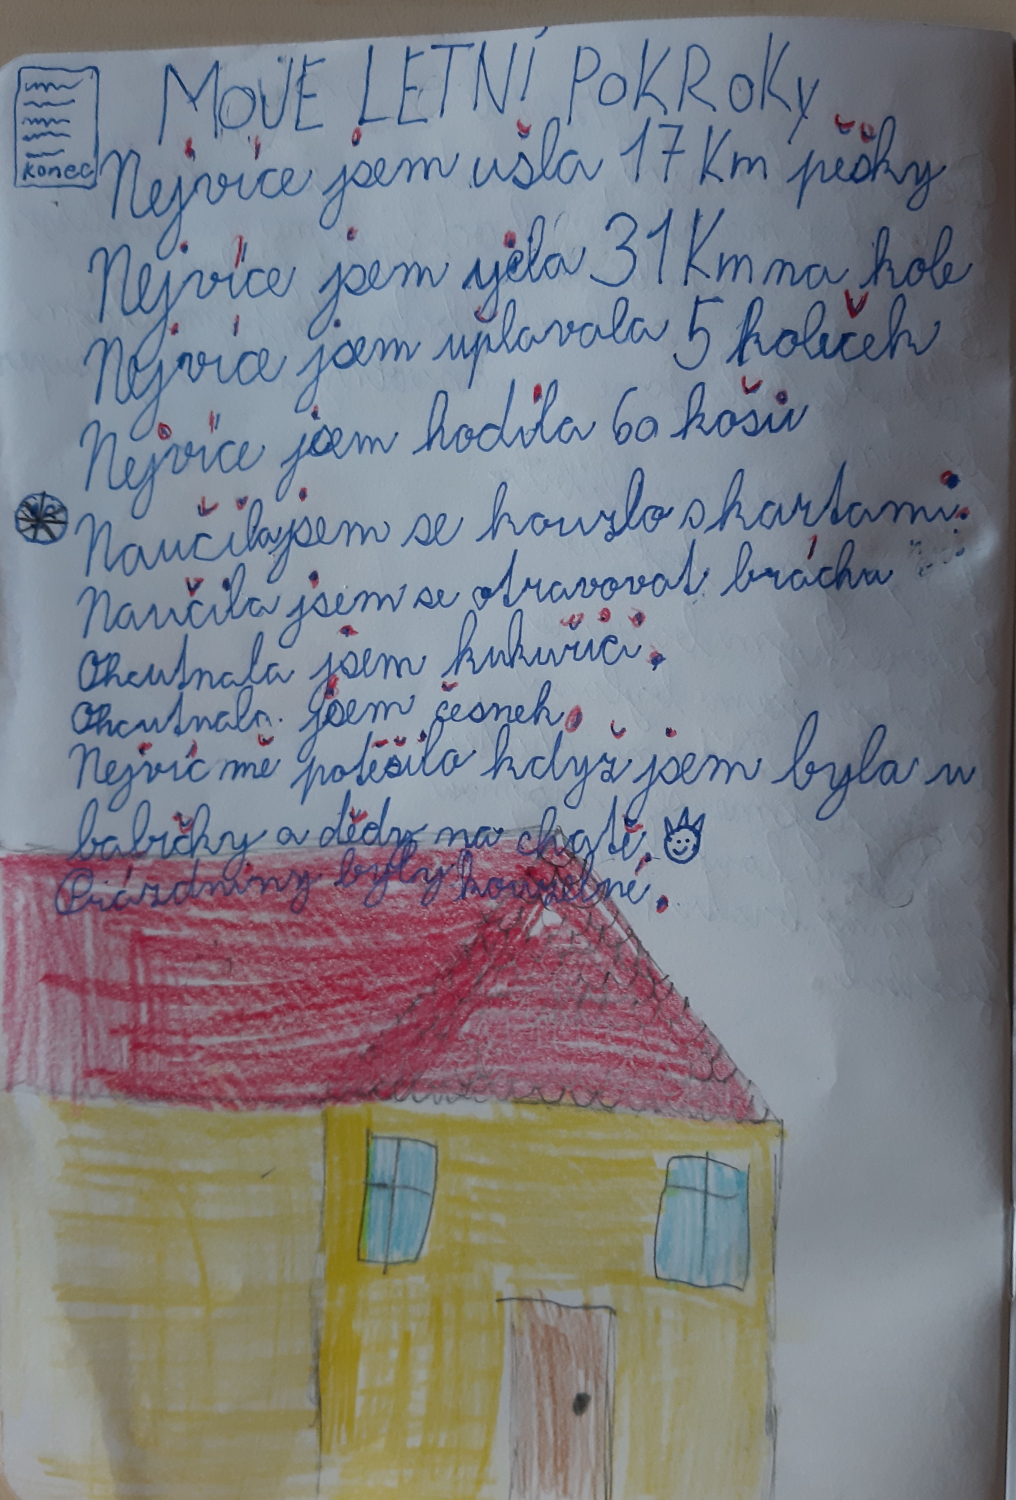 MOJE LETNÍ POKROKY
konec
Nejvíce jsem ušla 17 Km pěšky
Nejvíce jsem ujela 31 Km na kole
Nejvíce jsem uplavala 5 koleček
Nejvíce jsem hodila 60 košů
Naučila jsem se kouzlo s kartami.
Naučila jsem se otravovat bráchu
Ochutnala jsem kukuřici.
Ochutnala jsem česnek.
Nejvíc mě potěšilo když jsem byla u
babičky a dědy na chatě.
Prázdniny byly kouzelné.